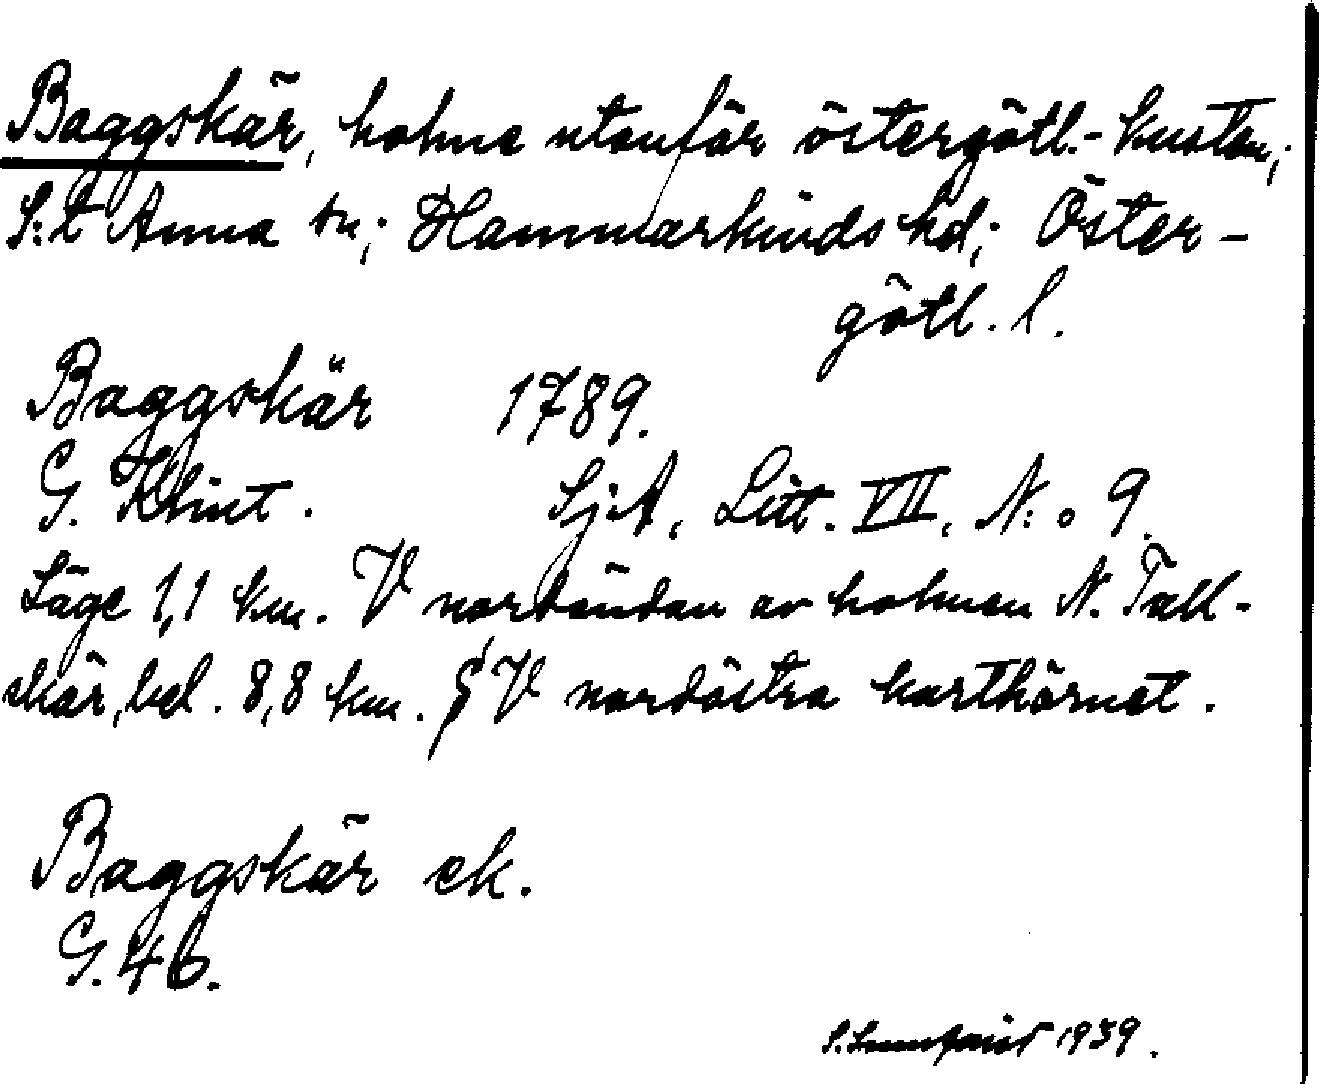 Baggskär, holme utanför östergötl.-kusten;
S:t Anna sn; Hammarkinds hd; Öster-
götl. l.
Baggskär 1789.
G. Klint. Sj.A, Litt. VII, N:o 9.
Läge 1,1 km. V nordändan av holmen N. Tall-
skär, bel. 8,8 km. V nordöstra karthörnet.
Baggskär ek.
G. 46.
1939.